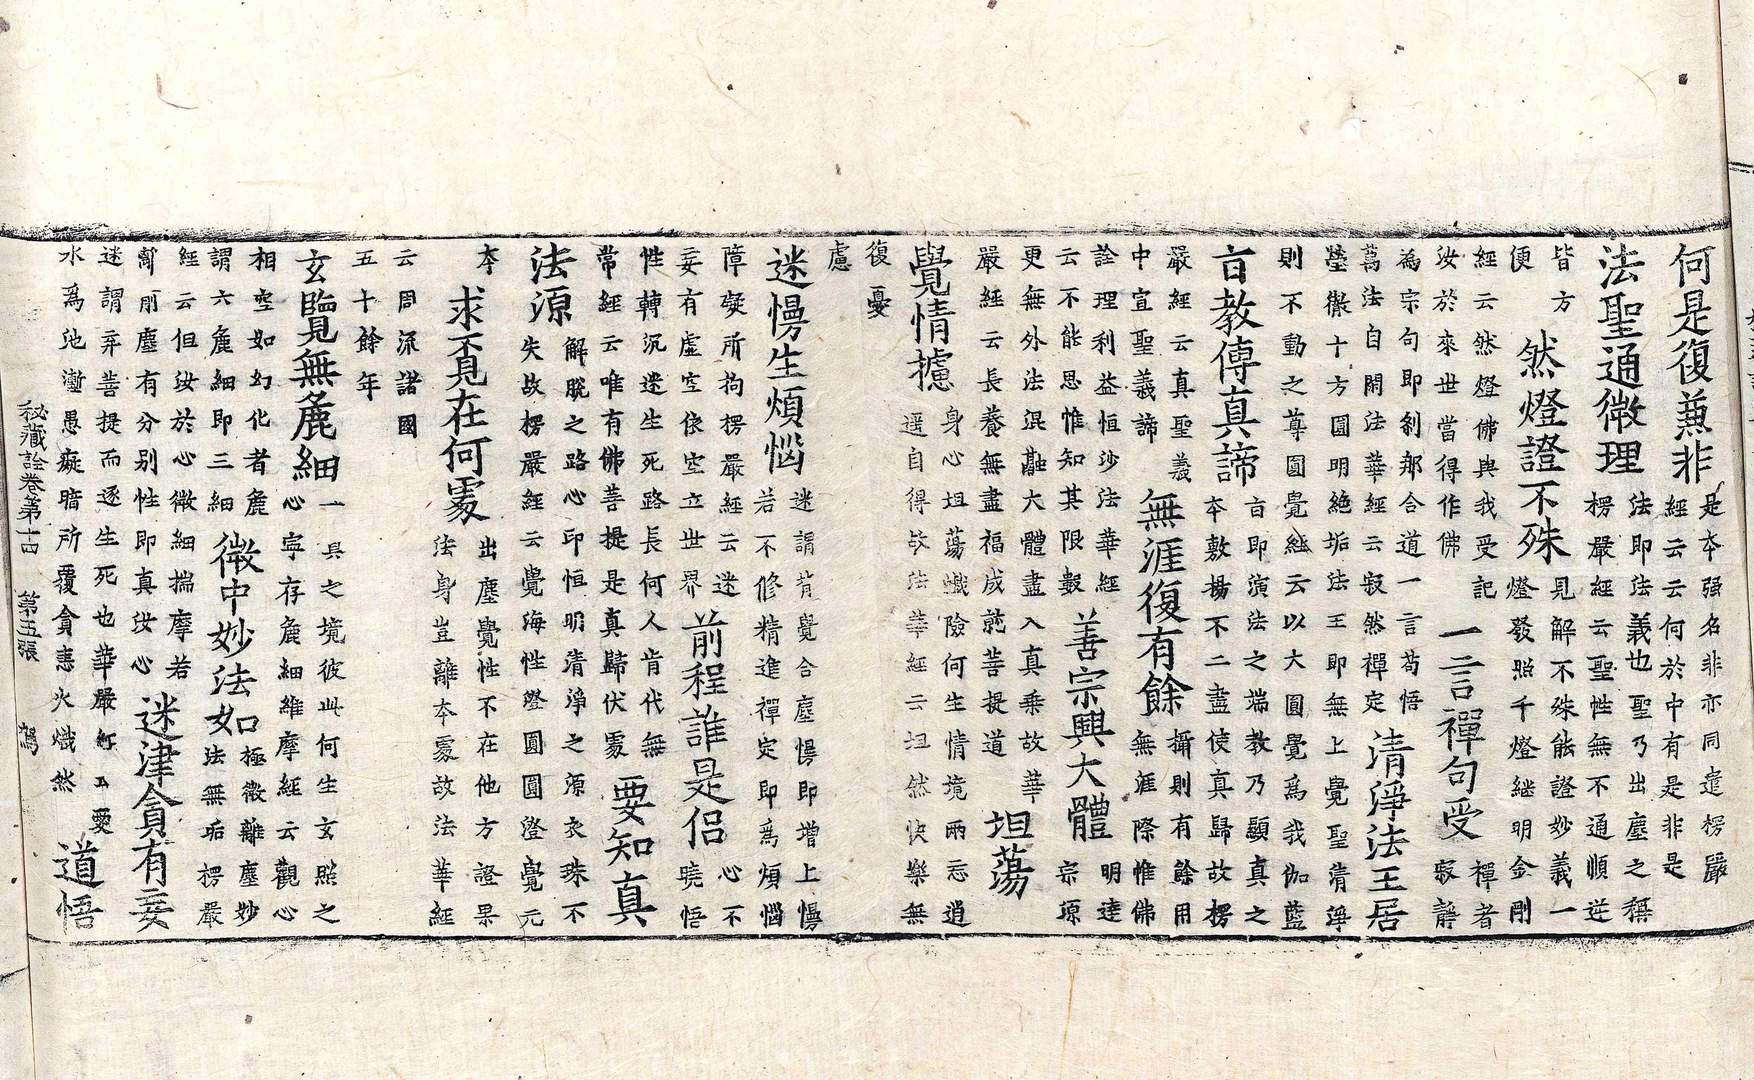 何是復兼非 是本强名非亦同遣楞嚴
經云云何於中有是非是
法聖通微理 法即法義也聖乃出塵之稱
楞嚴經云聖性無不通順逆
皆方
便 然燈證不殊 見解不殊能證妙義一
燈發照千燈継明金剛
經云然燈佛與我受記
汝於來世當得作佛 一言禪句受 禪者
寂靜
為宗句即剎那合道一言苟悟
萬法自閑法華經云寂然禪定 清淨法王居
瑩徹十方圓明絶垢法王即無上覺聖清淨
則不動之尊圓覺經云以大圓覺爲我伽藍
言教傳真諦 言即演法之端教乃顯真之
本敷揚不二盡使真歸故楞
嚴經云真聖義
中宣聖義諦 無涯復有餘 攝則有餘用
無涯際惟佛
詮理利益恒沙法華經
云不能思惟知其限數 善宗興大體 明達
宗源
更無外法混融大體盡入真乗故華
嚴經云長養無盡福成就菩提道 坦蕩
覺情攄 身心坦蕩巇險何生情境兩忘逍
遥自得故法華經云坦然快樂無
復憂
慮
迷慢生煩惱 迷謂背覺合塵慢即增上慢
若不修精進禪定即爲煩惱
障礙所拘楞嚴經云迷
妄有虚空依空立世界 前程誰是侣 心不
曉悟
性轉沉迷生死路長何人肯代無
常經云唯有佛菩提是真歸伏處 要知真
法源 解脱之路心印恒明清淨之源衣珠不
失故楞嚴經云覺海性澄圓圓澄覺元
本 求覓在何處 出塵覺性不在他方證果
法身豈離本處故法華經
云周流諸國
五十餘年
玄覽無麁細 一真之境彼此何生玄照之
心寧存麁細維摩經云觀心
相空如幻化者麁
謂六麁細即三細 微中妙法如 極微離塵妙
法無垢楞嚴
經云但汝於心微細揣摩若
離前塵有分别性即真汝心 迷津貪有妄
迷謂弃菩提而逐生死也華嚴經云愛
水爲池灔愚癡暗所覆貪恚火熾然 道悟
秘藏詮卷第十四 第五張